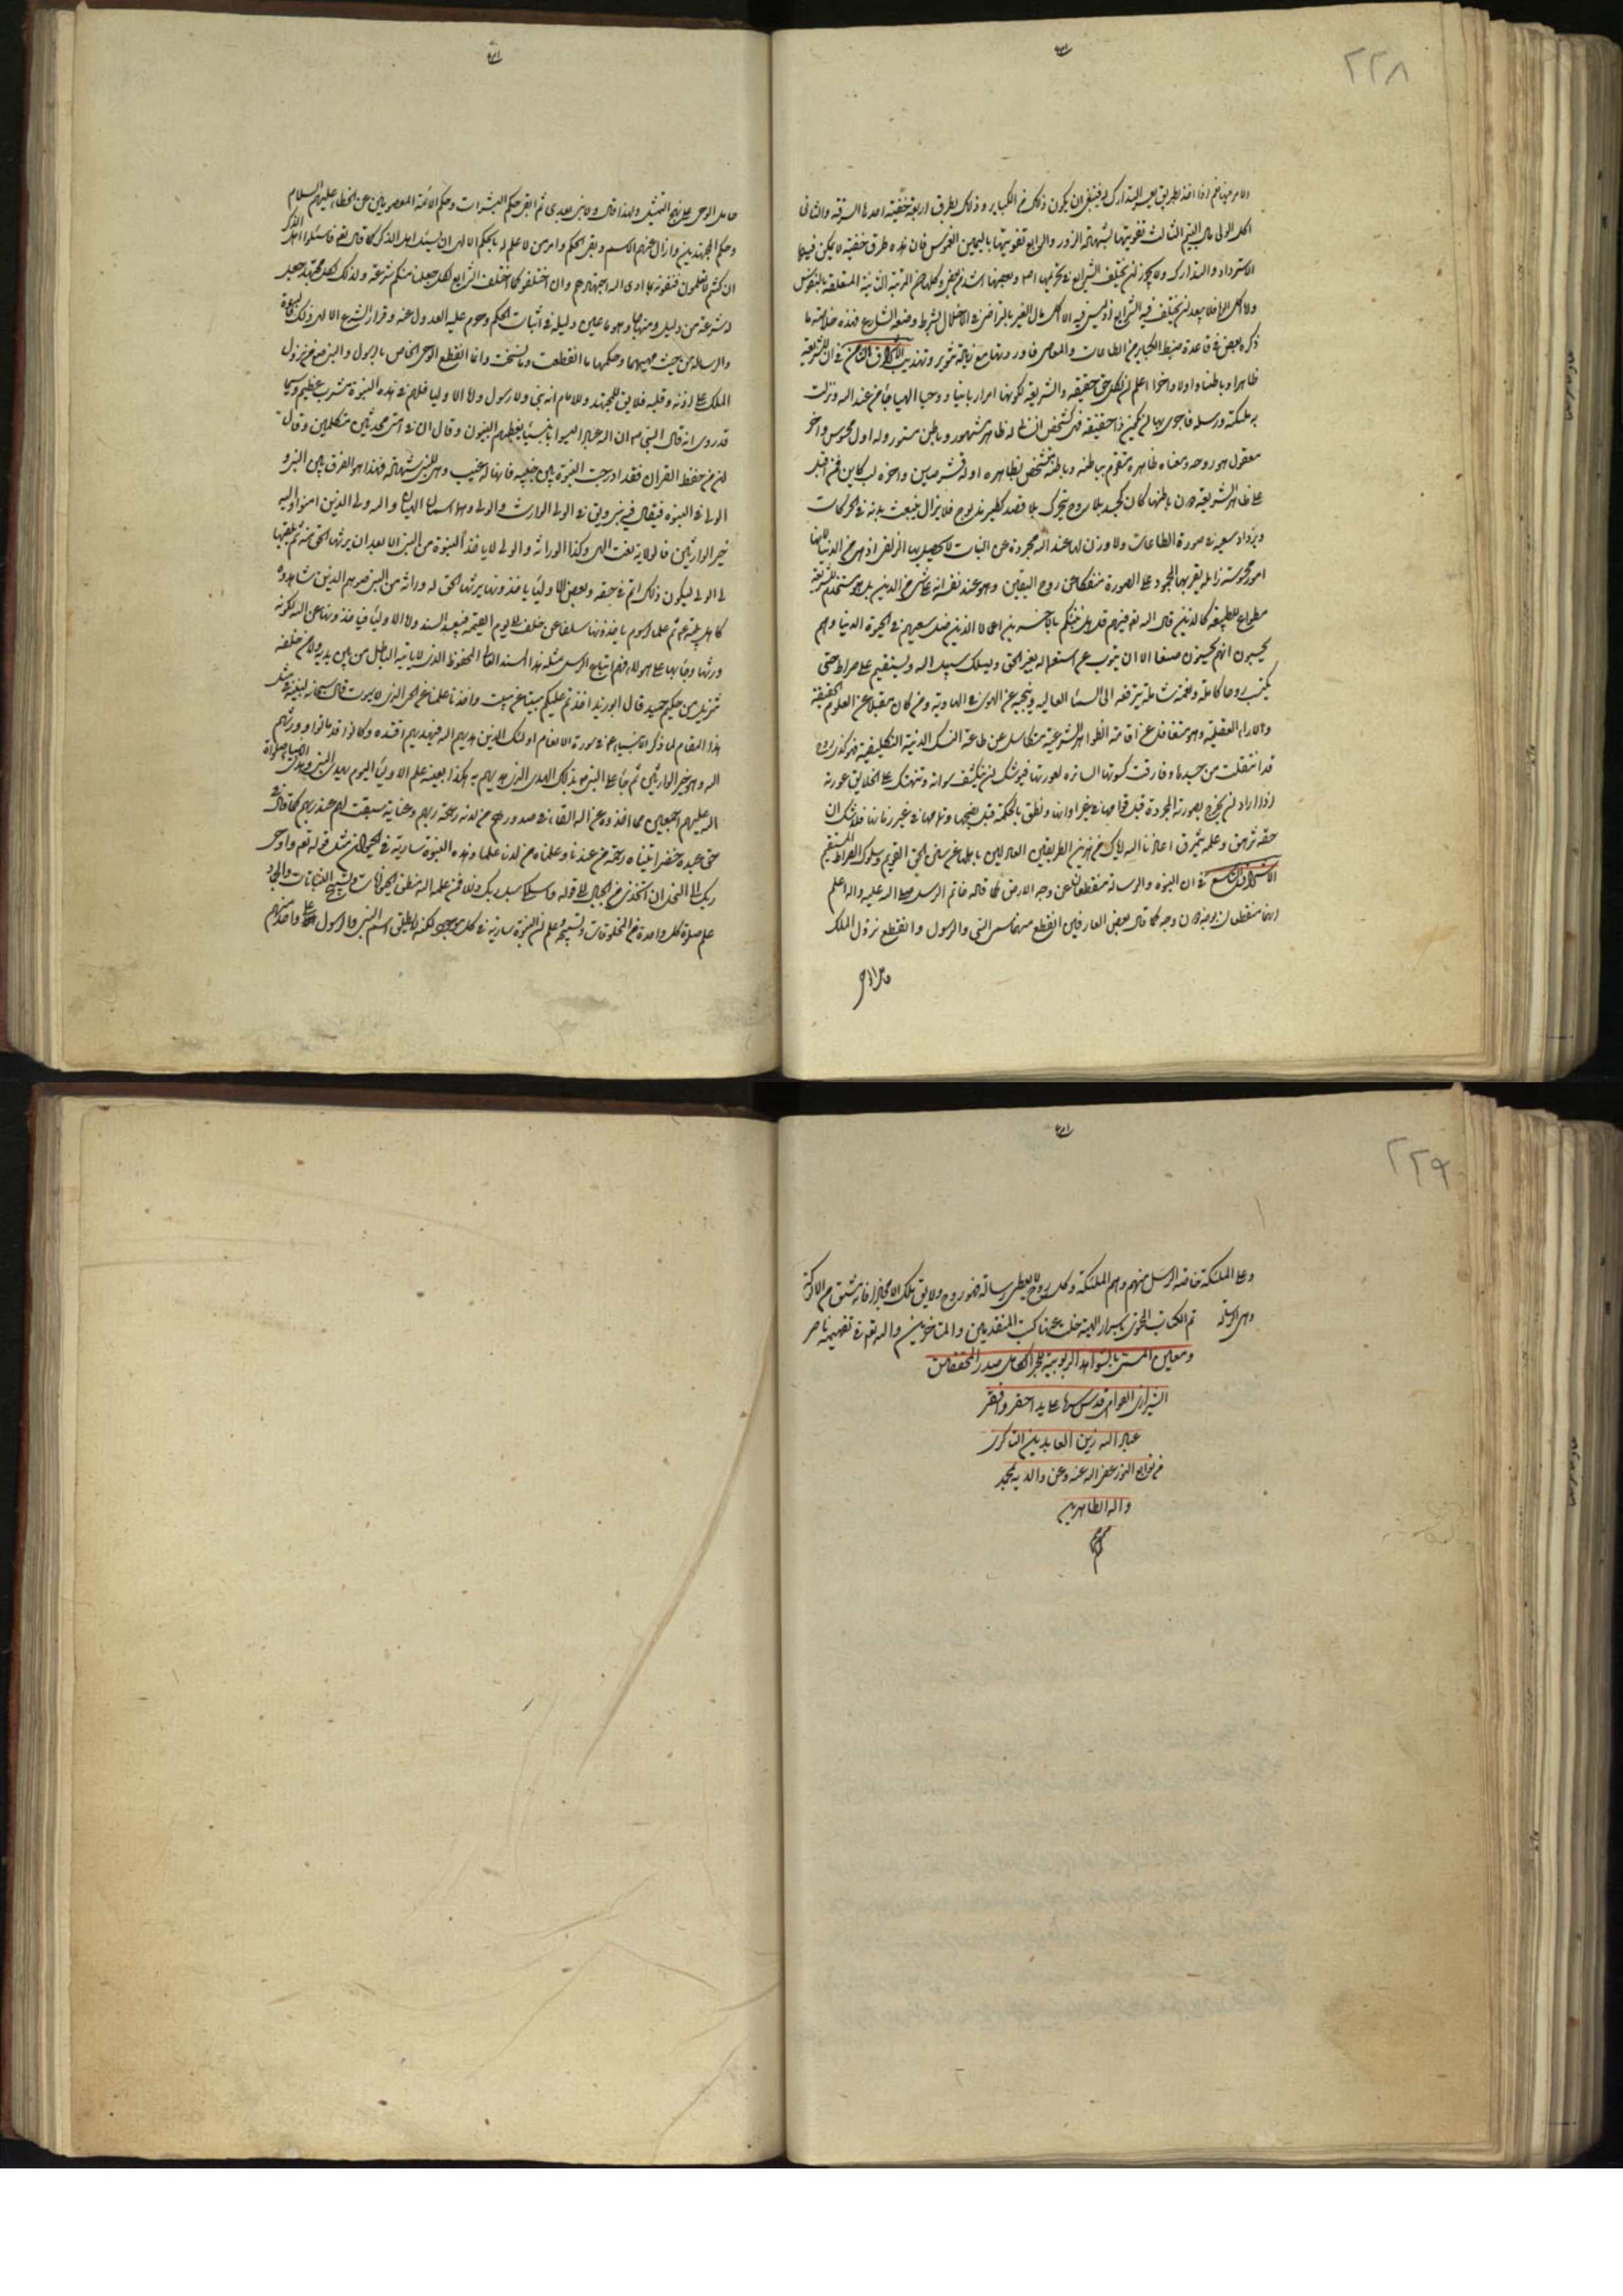 ٢٢٨
الامر فيها نعم اذا اخذ بطريق يعسر التدارك له فينبغي ان يكون ذلك من الكباير وذلك بطرق اربعة خفية احدها السرقة والثاني
اكل الولي مال اليتيم الثالث تفويتها بشهادة الزور والرابع تفويتها باليمين الغموس فان هذه طرق خفية لا يمكن فيها
الاسترداد والتدارك ولا يجوز ان يختلف الشرايع في تحريمها اصلا وبعضها اشد من بعض وكلها دون المرتبة الثانية المتعلقة بالنفوس
ولا اكل الربا فلا يبعد ان يختلف فيه الشرايع اذ ليس فيه الا اكل مال الغير بالتراضي مع الاخلال بشرط وضعه الشارع فهذه خلاصة ما
ذكره بعض في قاعدة ضبط الكباير من الطاعات والمعاصي قد اوردتها مع زيادة تنوير وتهذيب الاشراق الثامن في ان للشريعة
ظاهرا وباطنا واولا واخرا اعلم ان لكل حق حقيقة والشريعة لكونها امرا ربانيا ووحيا الهيا جاء من عند الله ونزلت
به ملئكته ورسله فاحرى بها ان يكون ذا حقيقة فهي كشخص انساني له ظاهر مشهور وباطن مستور وله اول محسوس واخر
معقول هو روحه ومعناه ظاهره متقوم بباطنه وباطنه متشخص بظاهره اوله قشر صاين واخره لب كاين فمن اقبل
على ظاهر الشريعة دون باطنها كان كجسد بلا روح يتحرك بلا قصد كطير مذبوح فلا يزال يتعب بدنه في الحركات
ويزداد سعيه في صورة الطاعات ولا وزن لها عند الله مجردة عن النيات لا يحصل بها الزلفى اذ هي من الدنيا لانها
امور محسوسة زايلة يغربها الجمود على الصورة منفكا عن روح اليقين وهو عند نفسه انه على شيء من الدين بل هو مستخدم للشريعة
مطواع للطبيعة كالذين قال الله تعالى فيهم قل هل ننبئكم بالاخسرين اعمالا الذين ضل سعيهم في الحيوة الدنيا وهم
يحسبون انهم يحسنون صنعا الا ان يتوب عن استعماله بغير الحق ويسلك سبيل الله ويستقيم على صراط حتى
يكتسب روحا كاملة ونعمة شاملة ترفعه الى السماء العالية وينجيه عن الهوى في الهاوية ومن كان مقبلا عن العلوم الحقيقة
والاراء العقلية وهو متغافل عن اقامة الظواهر الشرعية متكاسل عن طاعة النسك الدينية التكليفية فهو كذي روح
قد انتقلت من جسدها وفارقت كسوتها الساترة لعورتها فيوشك ان ينكشف سوأته وتنهتك على الخلايق عورته
اذا اراد ان يخرج بصورته المجردة قبل قوامها في غير اوانها ونطق بالحكمة قبل نضجها وتمامها في غير زمانها فلا شك ان
حقه تزهق وعلمه يتمزق اعاذنا الله واياك من هذين الطريقين العادلين باهلهما عن سنن الحق القويم وسلوك الصراط المستقيم
الاشراق التاسع في ان النبوة والرسالة منقطعتان عن وجه الارض كما قاله خاتم الرسل صلى الله عليه واله اعلم
انهما منقطعان بوجه دون وجه كما قال بعض العارفين انقطع منهما مسمى النبي والرسول وانقطع نزول الملك
حامل الوحي
حامل الوحي على نهج التمثيل ولهذا قال ولا نبي بعدي ثم ابقى حكم المبشرات وحكم الائمة المعصومين عن الخطاء عليهم السلام
وحكم المجتهدين وازال عنهم الاسم وبقى الحكم وامر من لا علم له بالحكم الالهي ان يسئل اهل الذكر كما قال تعالى فاسئلوا اهل الذكر
ان كنتم لا تعلمون فيفتونه بما ادى اليه اجتهادهم وان اختلفوا كما اختلف الشرايع لكل جعلنا منكم شرعة وكذلك لكل مجتهد جعل
له شرعة من دليله ومنهاجا وهو ما عين دليله في اثبات الحكم وحرم عليه العدول عنه وقرر الشرع الالهي ذلك فالنبوة
والرسالة من حيث مهيتهما وحكمهما ما انقطعت وما نسخت وانما انقطع الوحي الخاص بالرسول والنبي من نزول
الملك على اذنه وقلبه فلا يقال للمجتهد ولا الامام انه نبي ولا رسول واما الاولياء فلهم في هذه النبوة مشرب عظيم وسيما
قد روى انه قال النبي ص ان لله عبادا ليسوا بانبياء يغبطهم النبيون وقال ان في امتي محدثين متكلمين وقال
ان من حفظ القران فقد ادرجت النبوة بين جنبيه فانها له غيب وهي للنبي شهادة فهذا هو الفرق بين النبي و
الولي في النبوة فيقال فيه نبي ويقال في الولي الوارث والولي والوارث اسمان الهيان والله ولي الذين امنوا والله
خير الوارثين فالولاية نعت الهي وكذا الوراثة والولي لا ياخذ النبوة من النبي الا بعد ان يرثها الحق منه ثم يلقيها
الى الولي ليكون ذلك اتم في حقه وبعض الاولياء ياخذونها يرثها الحق له وراثة من النبي صم وهم الذين شاهدوه
كاهل بيته ع ثم علماء الرسوم ياخذونها سلفا عن خلف الى يوم القيمة فيبعد السند واما الاولياء فياخذونها عن الله لكونه
ورثها وجاد بها على هؤلاء فهم اتباع الرسل بمثل هذا السند العالي المحفوظ الذي لا ياتيه الباطل من بين يديه ولا من خلفه
تنزيل من حكيم حميد قال ابو يزيد اخذتم علمكم ميتا عن ميت واخذنا علمنا عن الحي الذي لا يموت قال سبحانه لنبيه في مثل
هذا المقام لما ذكر الانبياء ع في سورة الانعام اولئك الذين هديهم الله فبهديهم اقتده وكانوا قد ماتوا وورثهم
الله وهو خير الوارثين ثم جاء على النبي ص بذلك الهدى الذي هديهم به وهكذا بعينه علم الاولياء اليوم بهدى النبي وهدى الانبياء صلوات
الله عليهم اجمعين مما اخذوه عن الله القاه في صدورهم من لدنه رحمة ربهم وعناية سبقت لهم عند ربهم كما قال في
حق عبده خضر اتيناه رحمة من عندنا وعلمناه من لدنا علما وهذه النبوة سارية في الحيوان مثل قوله تعالى واوحى
ربك الى النحل ان اتخذي من الجبال الى قوله فاسلكي سبل ربك ذللا فمن علمه الله نطق الحيوانات وتسبيح النباتات والجماد
علم صلوة كل واحدة من المخلوقات وتسبيحه علم ان النبوة سارية في كل موجود لكنه لا يطلق اسم النبي والرسول الا على واحد منهم
٢٢٩
وعلى الملئكة خاصة الرسل منهم وهم الملئكة وكل روح لا يعطى رسالة فهو روح ولا يقال ملك الا مجازا فانه مشتق من الالوكة
وهي الرسالة تم الكتاب المحتوي باسرار الهية خلت عنها كتب المتقدمين والمتاخرين والله تعالى في تفهيمه ناصر
ومعين المسمى بالشواهد الربوبية للحبر الكامل صدر المحققين
الشيرازي القوامي قدس سرهما على يد احقر وافقر
عباد الله زين العابدين الذاكري
من توابع النور عفى الله عنه وعن والديه بمحمد
واله الطاهرين